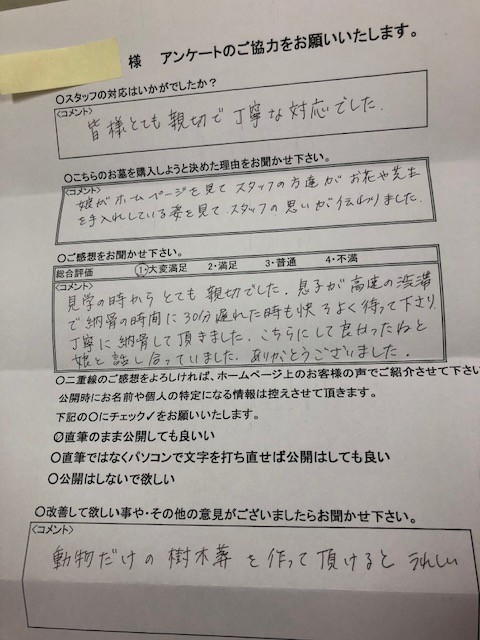 様 アンケートのご協力をお願いいたします。
〇スタッフの対応はいかがでしたか？
<コメント>
皆様とても親切で丁寧な対応でした。
〇こちらのお墓を購入しようと決めた理由をお聞かせ下さい。
<コメント>
娘がホームページを見てスタッフの方達がお花や芝生
を手入れしている姿を見てスタッフの思いが伝わりました。
〇ご感想をお聞かせ下さい。
総合評価 1・大変満足 2・満足 3・普通 4・不満
<コメント>
見学の時からとても親切でした。息子が高速の渋滞
で納骨の時間に30分遅れた時も快ろよく待って下さり
丁寧に納骨して頂きました。こちらにして良かったねと
娘と話し合っていました。ありがとうございました。
〇二重線のご感想をよろしければ、ホームページ上のお客様の声でご紹介させて下さい
公開時にお名前や個人の特定になる情報は控えさせて頂きます。
下記の〇にチェック✓をお願いいたします。
〇直筆のまま公開しても良いい
〇直筆ではなくパソコンで文字を打ち直せば公開はしても良い
〇公開はしないで欲しい
〇改善して欲しい事や・その他の意見がございましたらお聞かせ下さい。
<コメント>
動物だけの樹木葬を作って頂けるとうれしい